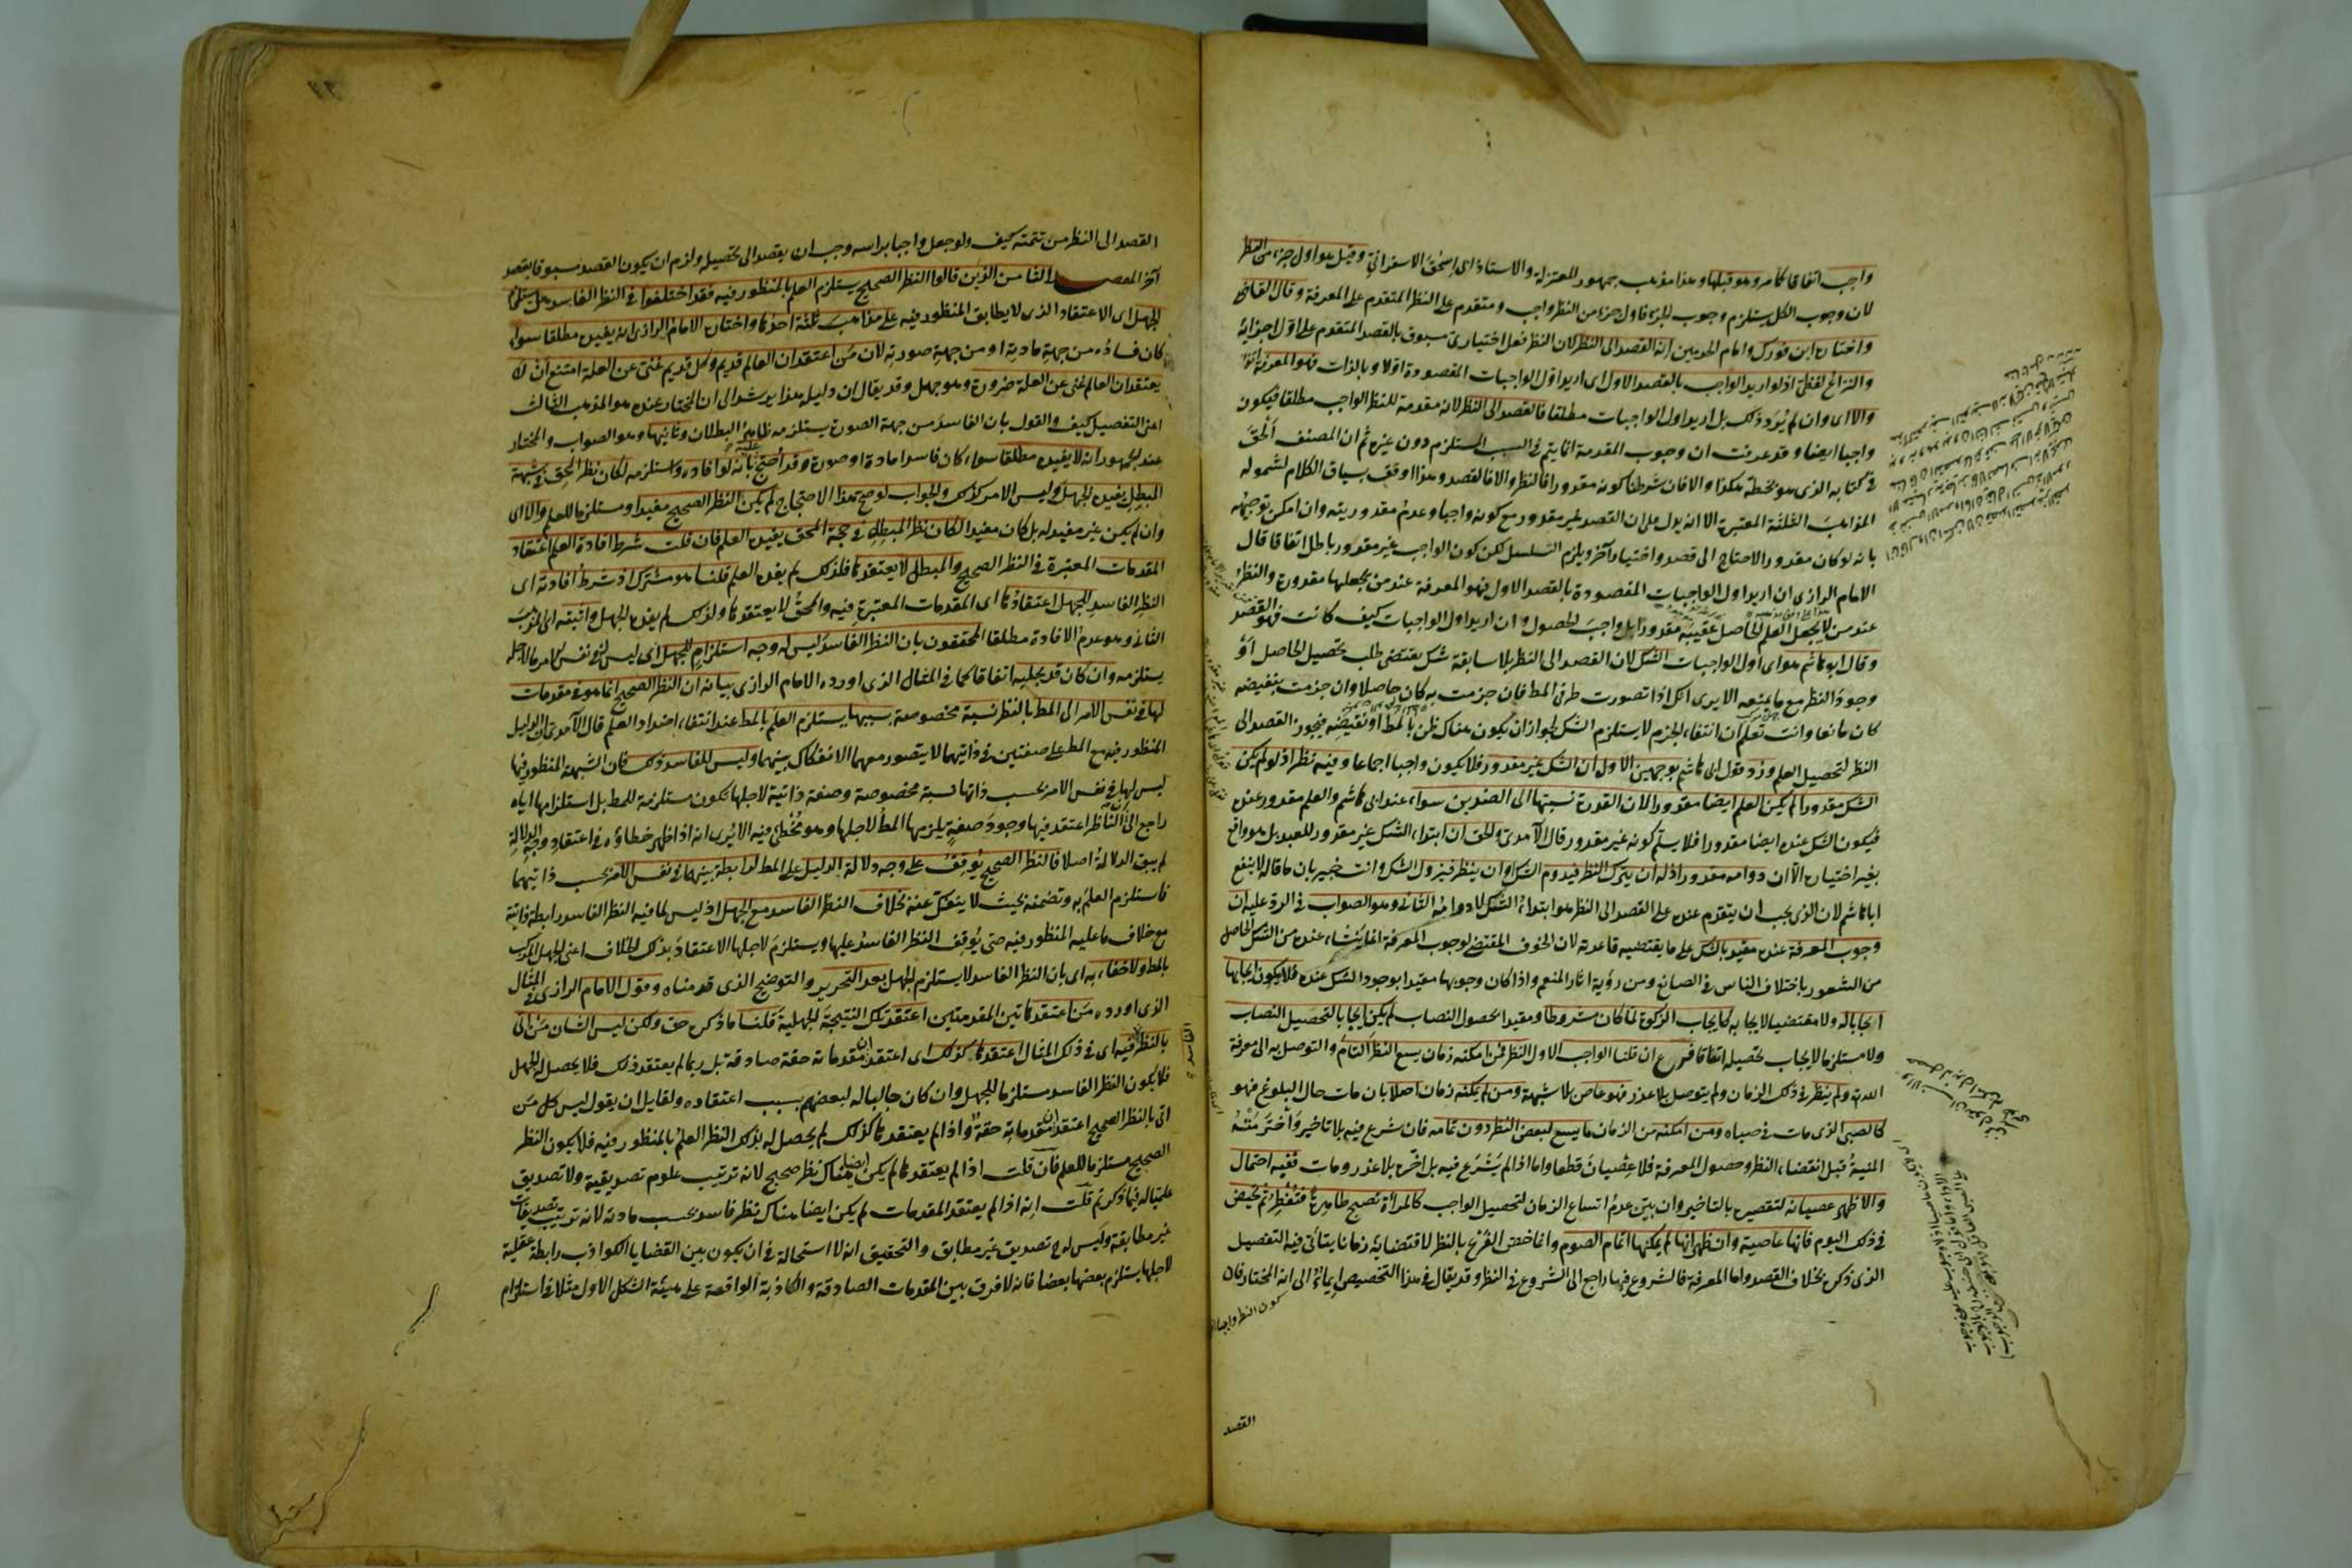 واجب اتفاقا كما مر وهو قبلها وهذا مذهب جمهور المعتزلة والاستاذ ابى اسحق الاسفرائنى وقيل هو اول جزء من النظر
لان وجوب الكل يستلزم وجوب اجزائه فاول جزء من النظر واجب ومتقدم على النظر المتقدم على المعرفة وقال القاضى
واختاره ابن فورك وامام الحرمين انه القصد الى النظر لان النظر فعل اختيارى مسبوق بالقصد المتقدم على اول اجزائه
والنزاع لفظى اذ لو اريد الواجب بالقصد الاول اى اريد اول الواجبات المقصودة اولا وبالذات فهو المعرفة اتفاقا
والا اى وان لم يُرَد ذلك بل اريد اول الواجبات مطلقا فالقصد الى النظر لانه مقدمة للنظر الواجب مطلقا فيكون
واجبا ايضا وقد عرفت ان وجوب المقدمة انما يتم فى السبب المستلزم دون غيره ثم ان المصنف الحق
فى كتابه الذى هو بخطه هكذا والا فان شرطنا كونه مقدورا فالنظر والا فالقصد وهذا اوفق بسياق الكلام لشموله
المذاهب الثلثة المعتبرة الا انه يدل على ان القصد غير مقدور مع كونه واجبا وعدم مقدوريته وان امكن توجيهه
بانه لو كان مقدورا لاحتاج الى قصد واختيار آخر ويلزم التسلسل لكن كون الواجب غير مقدور باطل اتفاقا قال
الامام الرازى ان اريد اول الواجبات المقصودة بالقصد الاول فهو المعرفة عند من يجعلها مقدورة والنظر
عند من لا يجعل العلم الحاصل عقيبه مقدورا بل واجب الحصول وان اريد اول الواجبات كيف كانت فهو القصد
وقال ابو هاشم هو اى اول الواجبات الشك لان القصد الى النظر بلا سابقة شك يقتضى طلب تحصيل الحاصل او
وجود النظر مع ما يمنعه الا يرى انك اذا تصورت طرفى المط فان جزمت به كان حاصلا وان جزمت بنقيضه
كان مانعا وانت تعلم ان انتفاء الجزم لا يستلزم الشك لجواز ان يكون هناك ظن بالمط او نقيضه فيجوز القصد الى
النظر لتحصيل العلم ورُد قول ابى هاشم بوجهين الاول ان الشك غير مقدور فلا يكون واجبا اجماعا وفيه نظر اذ لو لم يكن
الشك مقدورا لم يكن العلم ايضا مقدورا لان القدرة نسبتها الى الضدين سواء عند ابى هاشم والعلم مقدور عنده
فيكون الشك عنده ايضا مقدورا فلا يسلم كونه غير مقدور قال الآمدى والحق ان ابتداء الشك غير مقدور للعبد بل هو واقع
بغير اختياره الا ان دوامه مقدور اذ له ان يترك النظر فيدوم الشك او ان ينظر فيزول الشك وانت خبير بان ما قاله لا ينفع
ابا هاشم لان الذى يجب ان يتقدم عنده على القصد الى النظر هو ابتداء الشك لا دوامه الثانى وهو الصواب فى الرد عليه ان
وجوب المعرفة عنده مقيد بالشك على ما يقتضيه قاعدته لان الخوف المقتضى لوجوب المعرفة انما ينشاء عنده من الشك الحاصل
من الشعور باختلاف الناس فى الصانع ومن رؤية آثار المنعم واذا كان وجوبها مقيدا بوجود الشك عنده فلا يكون ايجابها
ايجابا له ولا مقتضيا لايجابه كايجاب الزكوة لما كان مشروطا ومقيدا بحصول النصاب لم يكن ايجابا لتحصيل النصاب
ولا مستلزما لايجاب تحصيله اتفاقا فرع ان قلنا الواجب الاول النظر فمن امكنه زمان يسع النظر التام والتوصل به الى معرفة
الله تعالى ولم ينظر فى ذلك الزمان ولم يتوصل بلا عذر فهو عاص بلا شبهة ومن لم يمكنه زمان اصلا بان مات حال البلوغ فهو
كالصبى الذى مات فى صباه ومن امكنه من الزمان ما يسع لبعض النظر دون تمامه فان شرع فيه بلا تاخير واخترمته
المنية قبل انقضاء النظر وحصول المعرفة فلا عصيان قطعا واما اذا لم يشرع فيه بل اخره بلا عذر ومات ففيه احتمال
والاظهر عصيانه لتقصيره بالتاخير وان تبين عدم اتساع الزمان لتحصيل الواجب كالمرأة تصبح طاهرة فتفطر ثم تحيض
فى ذلك اليوم فانها عاصية وان ظهر انها لم يمكنها اتمام الصوم وانما خص الفرع بالنظر لاقتضائه زمانا يتأتى فيه التفصيل
الذى ذكره بخلاف القصد واما المعرفة فالشروع فيها راجع الى الشروع فى النظر وقد يقال فى هذا التخصيص ايماء الى انه المختار فان
كون النظر واجبا
القصد
القصد الى النظر من تتمته كيف ولو جعل واجبا براسه وجب ان يقصد الى تحصيله ولزم ان يكون القصد مسبوقا بقصد
آخر المقصد الثامن الذين قالوا النظر الصحيح يستلزم العلم بالمنظور فيه فقد اختلفوا فى النظر الفاسد هل يستلزم
الجهل اى الاعتقاد الذى لا يطابق المنظور فيه على مذاهب ثلثة احدها واختاره الامام الرازى انه يفيده مطلقا سواء
كان فساده من جهة مادية او من جهة صورته لان من اعتقد ان العالم قديم وكل قديم غنى عن العلة امتنع ان لا
يعتقد ان العالم غنى عن العلة ضرورة وهو جهل وقد يقال ان دليله هذا يرشد الى ان المختار عنده هو المذهب الثالث
اعنى التفصيل كيف والقول بان الفاسد من جهة الصورة يستلزمه ظاهر البطلان وثانيها وهو الصواب والمختار
عند الجمهور انه لا يفيده مطلقا سواء كان فاسدا مادة او صورة وقد احتج عليه بانه لو افاده واستلزمه لكان نظر المحق فى شبهة
المبطل يفيده الجهل وليس الامر كذلك والجواب لو صح هذا الاحتجاج لم يكن النظر الصحيح مفيدا ومستلزما للعلم والا اى
وان لم يكن غير مفيد له بل كان مفيدا لكان نظر المبطل فى حجة المحق يفيده العلم فان قلت شرط افادة العلم اعتقاد
المقدمات المعتبرة فى النظر الصحيح والمبطل لا يعتقدها فلذلك لم يفده العلم قلنا هو مشترك اذ شرط افادته اى
النظر الفاسد للجهل اعتقادها اى المقدمات المعتبرة فيه والمحق لا يعتقدها ولذلك لم يفده الجهل واثبته اى المذهب
الثانى وهو عدم الافادة مطلقا المحققون بان النظر الفاسد ليس له وجه استلزام للجهل اى ليس له فى نفس الامر ما لاجله
يستلزمه وان كان قد يجلبه اتفاقا كما فى المثال الذى اورده الامام الرازى بيانه ان النظر الصحيح انما هو فى مقدمات
لها فى نفس الامر الى المط بالنظر نسبة مخصوصة بسببها يستلزم العلم بالمط عند انتفاء اضداد العلم قال الآمدى ان الدليل
المنظور فيه مع المط على صفتين فى ذاتيهما لا يتصور معهما الانفكاك بينهما وليس للفاسد ذلك فان الشبهة المنظور فيها
ليس لها فى نفس الامر بحسب ذاتها نسبة مخصوصة وصفة ذاتية لاجلها تكون مستلزمة للمط بل استلزامها اياه
راجع الى ان الناظر اعتقد فيها وجود صفة يلزمها المط لاجلها وهو مخطئ فيه الا يرى انه اذا ظهر خطاؤه فى اعتقاد وجه الدلالة
لم يبق الدلالة اصلا فالنظر الصحيح يوقف على وجه دلالة الدليل على المط لرابطة بينهما فى نفس الامر بحسب ذاتيهما
فاستلزم العلم به وتضمنه بحيث لا ينفك عنه بخلاف النظر الفاسد مع الجهل اذ ليس لما فيه النظر الفاسد رابطة ذاتية
مع خلاف ما عليه المنظور فيه حتى يوقف النظر الفاسد عليها ويستلزم لاجلها الاعتقاد بذلك الخلاف اعنى الجهل المركب
بالمط ولا خفاء به اى بان النظر الفاسد لا يستلزم الجهل بعد التحرير والتوضيح الذى قدمناه وقول الامام الرازى فى المثال
الذى اورده من اعتقد هاتين المقدمتين اعتقد تلك النتيجة الجهلية قلنا ما ذكره حق ولكن ليس الشان من اتى
بالنظر فيه اى فى ذلك المثال اعتقدها كذلك اى اعتقد ان مقدماته حقة صادقة بل ربما لم يعتقد ذلك فلا يحصل له الجهل
فلا يكون النظر الفاسد مستلزما للجهل وان كان جالبا له لبعضهم بسبب اعتقاده ولقايل ان يقول ليس كل من
اتى بالنظر الصحيح اعتقد ان مقدماته حقة واذا لم يعتقدها كذلك لم يحصل له بذلك النظر العلم بالمنظور فيه فلا يكون النظر
الصحيح مستلزما للعلم فان قلت اذا لم يعتقدها لم يكن هناك ايضا نظر صحيح لانه ترتيب علوم تصديقية ولا تصديق
علميا له فيما ذكرتم قلت انه اذا لم يعتقد المقدمات لم يكن ايضا هناك نظر فاسد بحسب مادته لانه ترتيب تصديقات
غير مطابقة وليس له تصديق غير مطابق والتحقيق انه لا استحالة فى ان يكون بين القضايا الكواذب رابطة عقلية
لاجلها يستلزم بعضها بعضا فانه لا فرق بين المقدمات الصادقة والكاذبة الواقعة على هيئة الشكل الاول مثلا فى استلزام